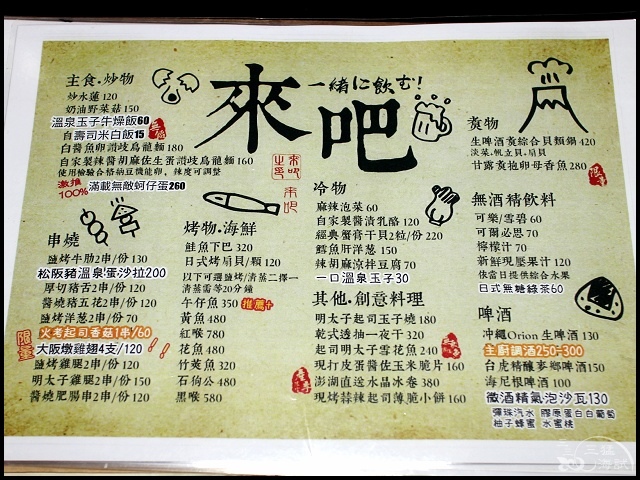 來吧
一緒に飲む!
主食.炒物
炒水蓮 120
奶油野菜菇 150
溫泉玉子牛燥飯60
自壽司米白飯15
白醬魚卵讚岐烏龍麵 180
自家製辣醬胡麻佐生蛋讚岐烏龍麵 160
使用檢驗合格納豆機能卵，辣度可調整
激推
100%
滿載無敵蚵仔蛋260
串燒
鹽烤牛肋2串/份 130
松阪豬溫泉蛋沙拉200
厚切豬舌2串/份 120
醬燒豬五花2串/份 120
鹽烤洋蔥2串/份 70
限量
火考起司香菇1串/60
大阪燉雞翅4支/120
鹽烤雞腿2串/份 120
明太子雞腿2串/份 150
醬燒肥腸串2串/份 120
烤物.海鮮
鮭魚下巴 320
日式烤扇貝/顆 120
以下可選鹽烤/清蒸二擇一
清蒸需等20分鐘
午仔魚 350 推薦
黃魚 480
紅喉 780
花魚 480
竹莢魚 320
石狗公 480
黑喉 580
冷物
麻辣泡菜 60
自家製醬漬乳酪 120
經典蟹膏干貝2粒/份 220
鱈魚肝洋蔥 150
辣胡麻涼拌豆腐 70
一口溫泉玉子30
其他.創意料理
明太子起司玉子燒 180
乾式透抽一夜干 320
起司明太子雪花魚 240
現打皮蛋醬佐玉米脆片 160
澎湖直送水晶冰卷 380
現烤蒜辣起司薄脆小餅 160
炙物
生啤酒炙綜合貝類鍋 420
淡菜.帆立貝.扇貝
甘露炙抱卵母香魚 280
無酒精飲料
可樂/雪碧 60
可爾必思 70
檸檬汁 70
新鮮現壓果汁 120
依當日提供綜合水果
日式無糖綠茶60
啤酒
沖繩Orion生啤酒 130
主廚調酒250-300
台虎精釀麥鄉啤酒 150
海尼根啤酒 100
微酒精氣泡沙瓦130
彈珠汽水 膠原蛋白白葡萄
柚子蜂蜜 水蜜桃